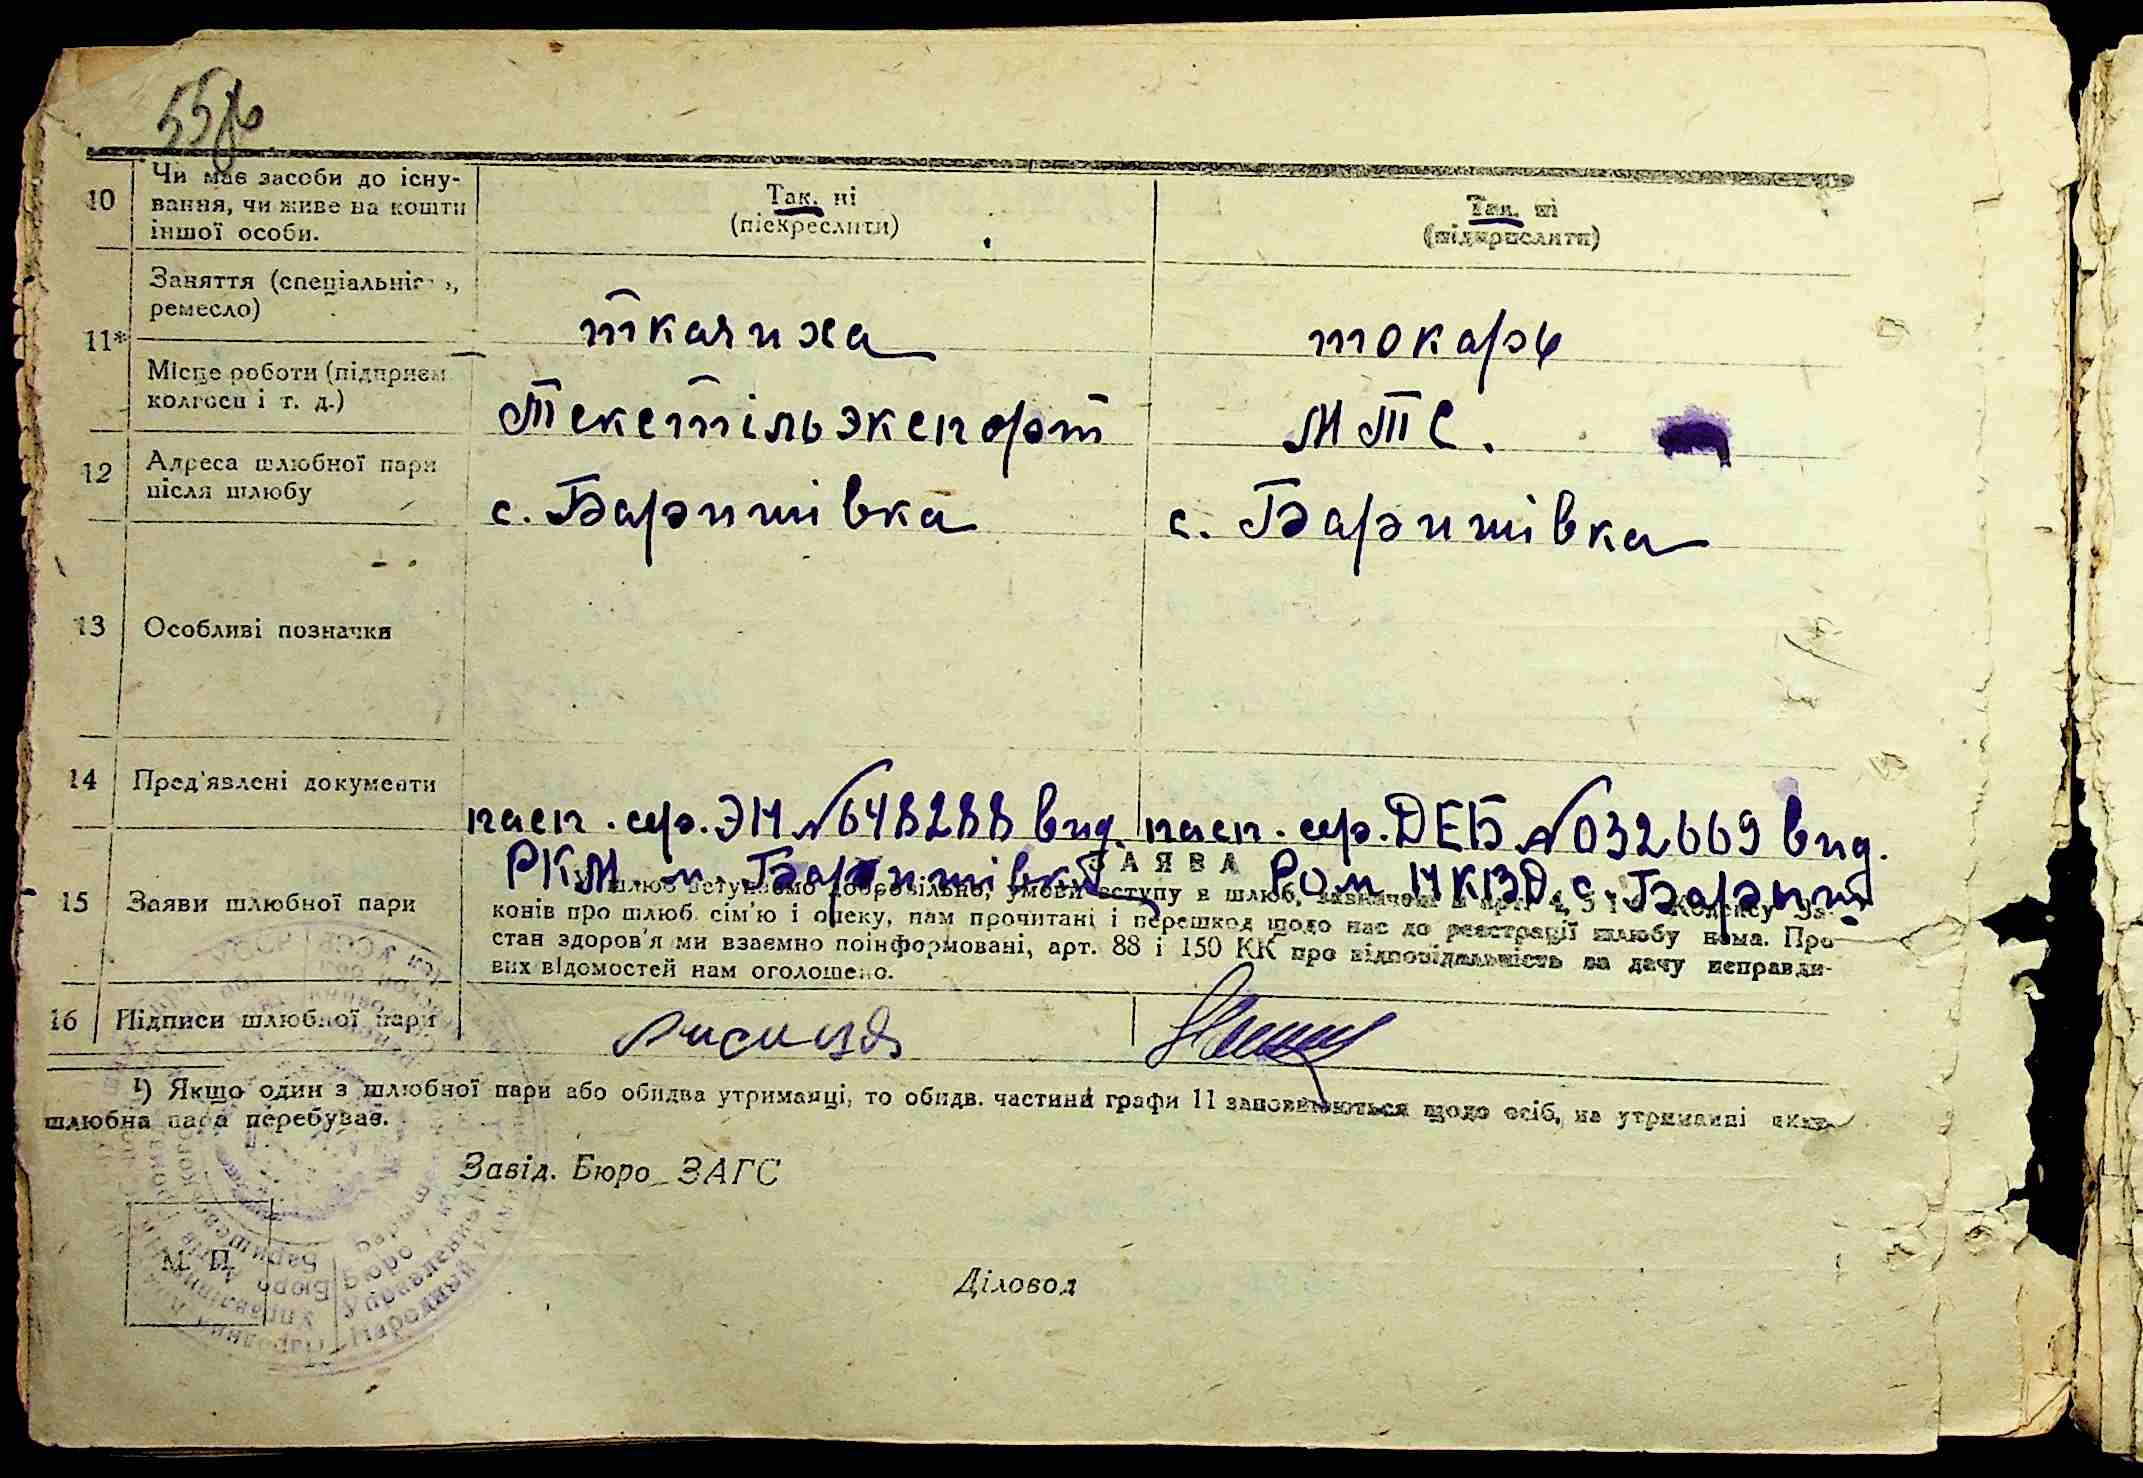 10
Чи має засоби до існу-
вання, чи живе на кошти
іншої особи.
Так. ні
(піскреслити)
Так. ні
(підкреслити)
11*
Заняття (спеціальність,
ремесло)
ткачиха
токарь
Місце роботи (підприєм.
колгосп і т. д.)
Текстільэкспорт
МТС.
12
Адреса шлюбної пари
після шлюбу
с. Баришівка
с. Баришівка
13 Особливі позначки
14 Пред'явлені документи
пасп. сер. ЭМ №648288 вид.
РКМ м. Баришівка
пасп. сер. ДЕБ №032669 вид.
Ром НКВД с. Бариш
15 Заяви шлюбної пари
ЗАЯВА
У шлюб вступаємо добровільно, умови вступу в шлюб, зазначені в арт. 4, 5 і Кодексу За-
конів про шлюб, сім'ю і опеку, нам прочитані і перешкод щодо нас до реєстрації шлюбу нема. Про
стан здоров'я ми взаємно поінформовані, арт. 88 і 150 КК про відповідальність за дачу неправди-
вих відомостей нам оголошено.
16 Підписи шлюбної пари
Лисиця
¹) Якщо один з шлюбної пари або обидва утриманці, то обидв. частини графи 11 заповнюються щодо осіб, на утриманні яких
шлюбна пара перебуває.
Завід. Бюро ЗАГС
М. П.
Діловод